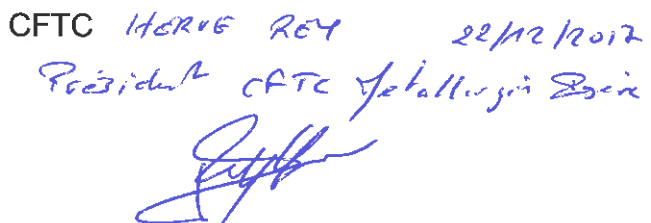 CFTC HERVE REY 22/12/2017
Président CFTC Métallurgie Isère